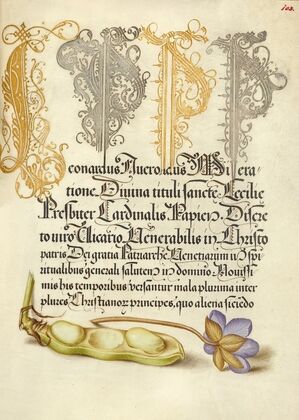 103.
P P P
eonardus Aueroldus Miſera
tione Diuina tituli ſancte Cecilie
Preſbiter Cardinalis Papien Diſcre
to viro Vicario Venerabilis in Chriſto
patris Dei gratia Patriarche Venetiarum in ſpi
ritualibus generali ſalutem in domino Nouiſſi
mis his temporibus verſantur mala plurima inter
plures Chriſtianor principes, quo aliena